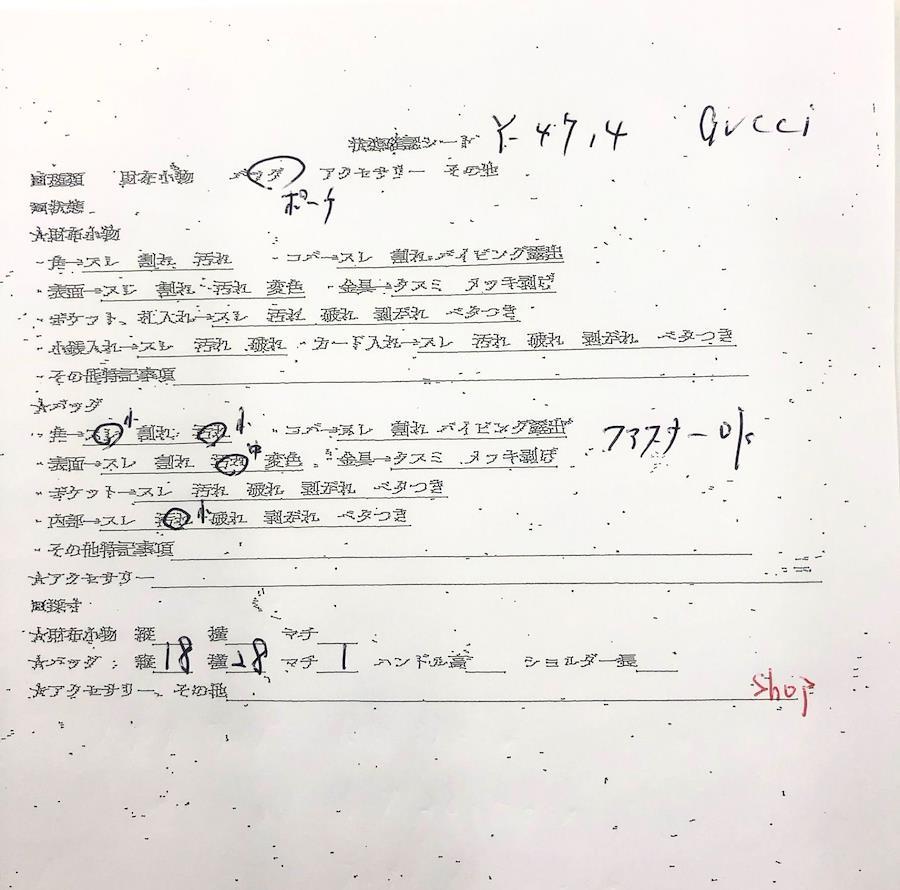 状態確認シート Y-47,4 Gucci
■種類 財布小物 バッグ アクセサリー その他
ポーチ
■状態
★財布小物
・角→スレ 割れ 汚れ ・コバ→スレ 割れ パイピング露出
・表面→スレ 割れ 汚れ 変色 ・金具→クスミ メッキ剥げ
・ポケット、札入れ→スレ 汚れ 破れ 剥がれ ベタつき
・小銭入れ→スレ 汚れ 破れ ・カード入れ→スレ 汚れ 破れ 剥がれ ベタつき
・その他特記事項
★バッグ
・角→スレ小 割れ 汚れ小 ・コバ→スレ 割れ パイピング露出 ファスナー
・表面→スレ 割れ 汚れ中 変色 ・金具→クスミ メッキ剥げ
・ポケット→スレ 汚れ 破れ 剥がれ ベタつき
・内部→スレ 汚れ小 破れ 剥がれ ベタつき
・その他特記事項
★アクセサリー
■採寸
★財布小物 縦 横 マチ
★バッグ: 縦18 横28 マチ1 ハンドル高 ショルダー長
★アクセサリー、その他 Shop